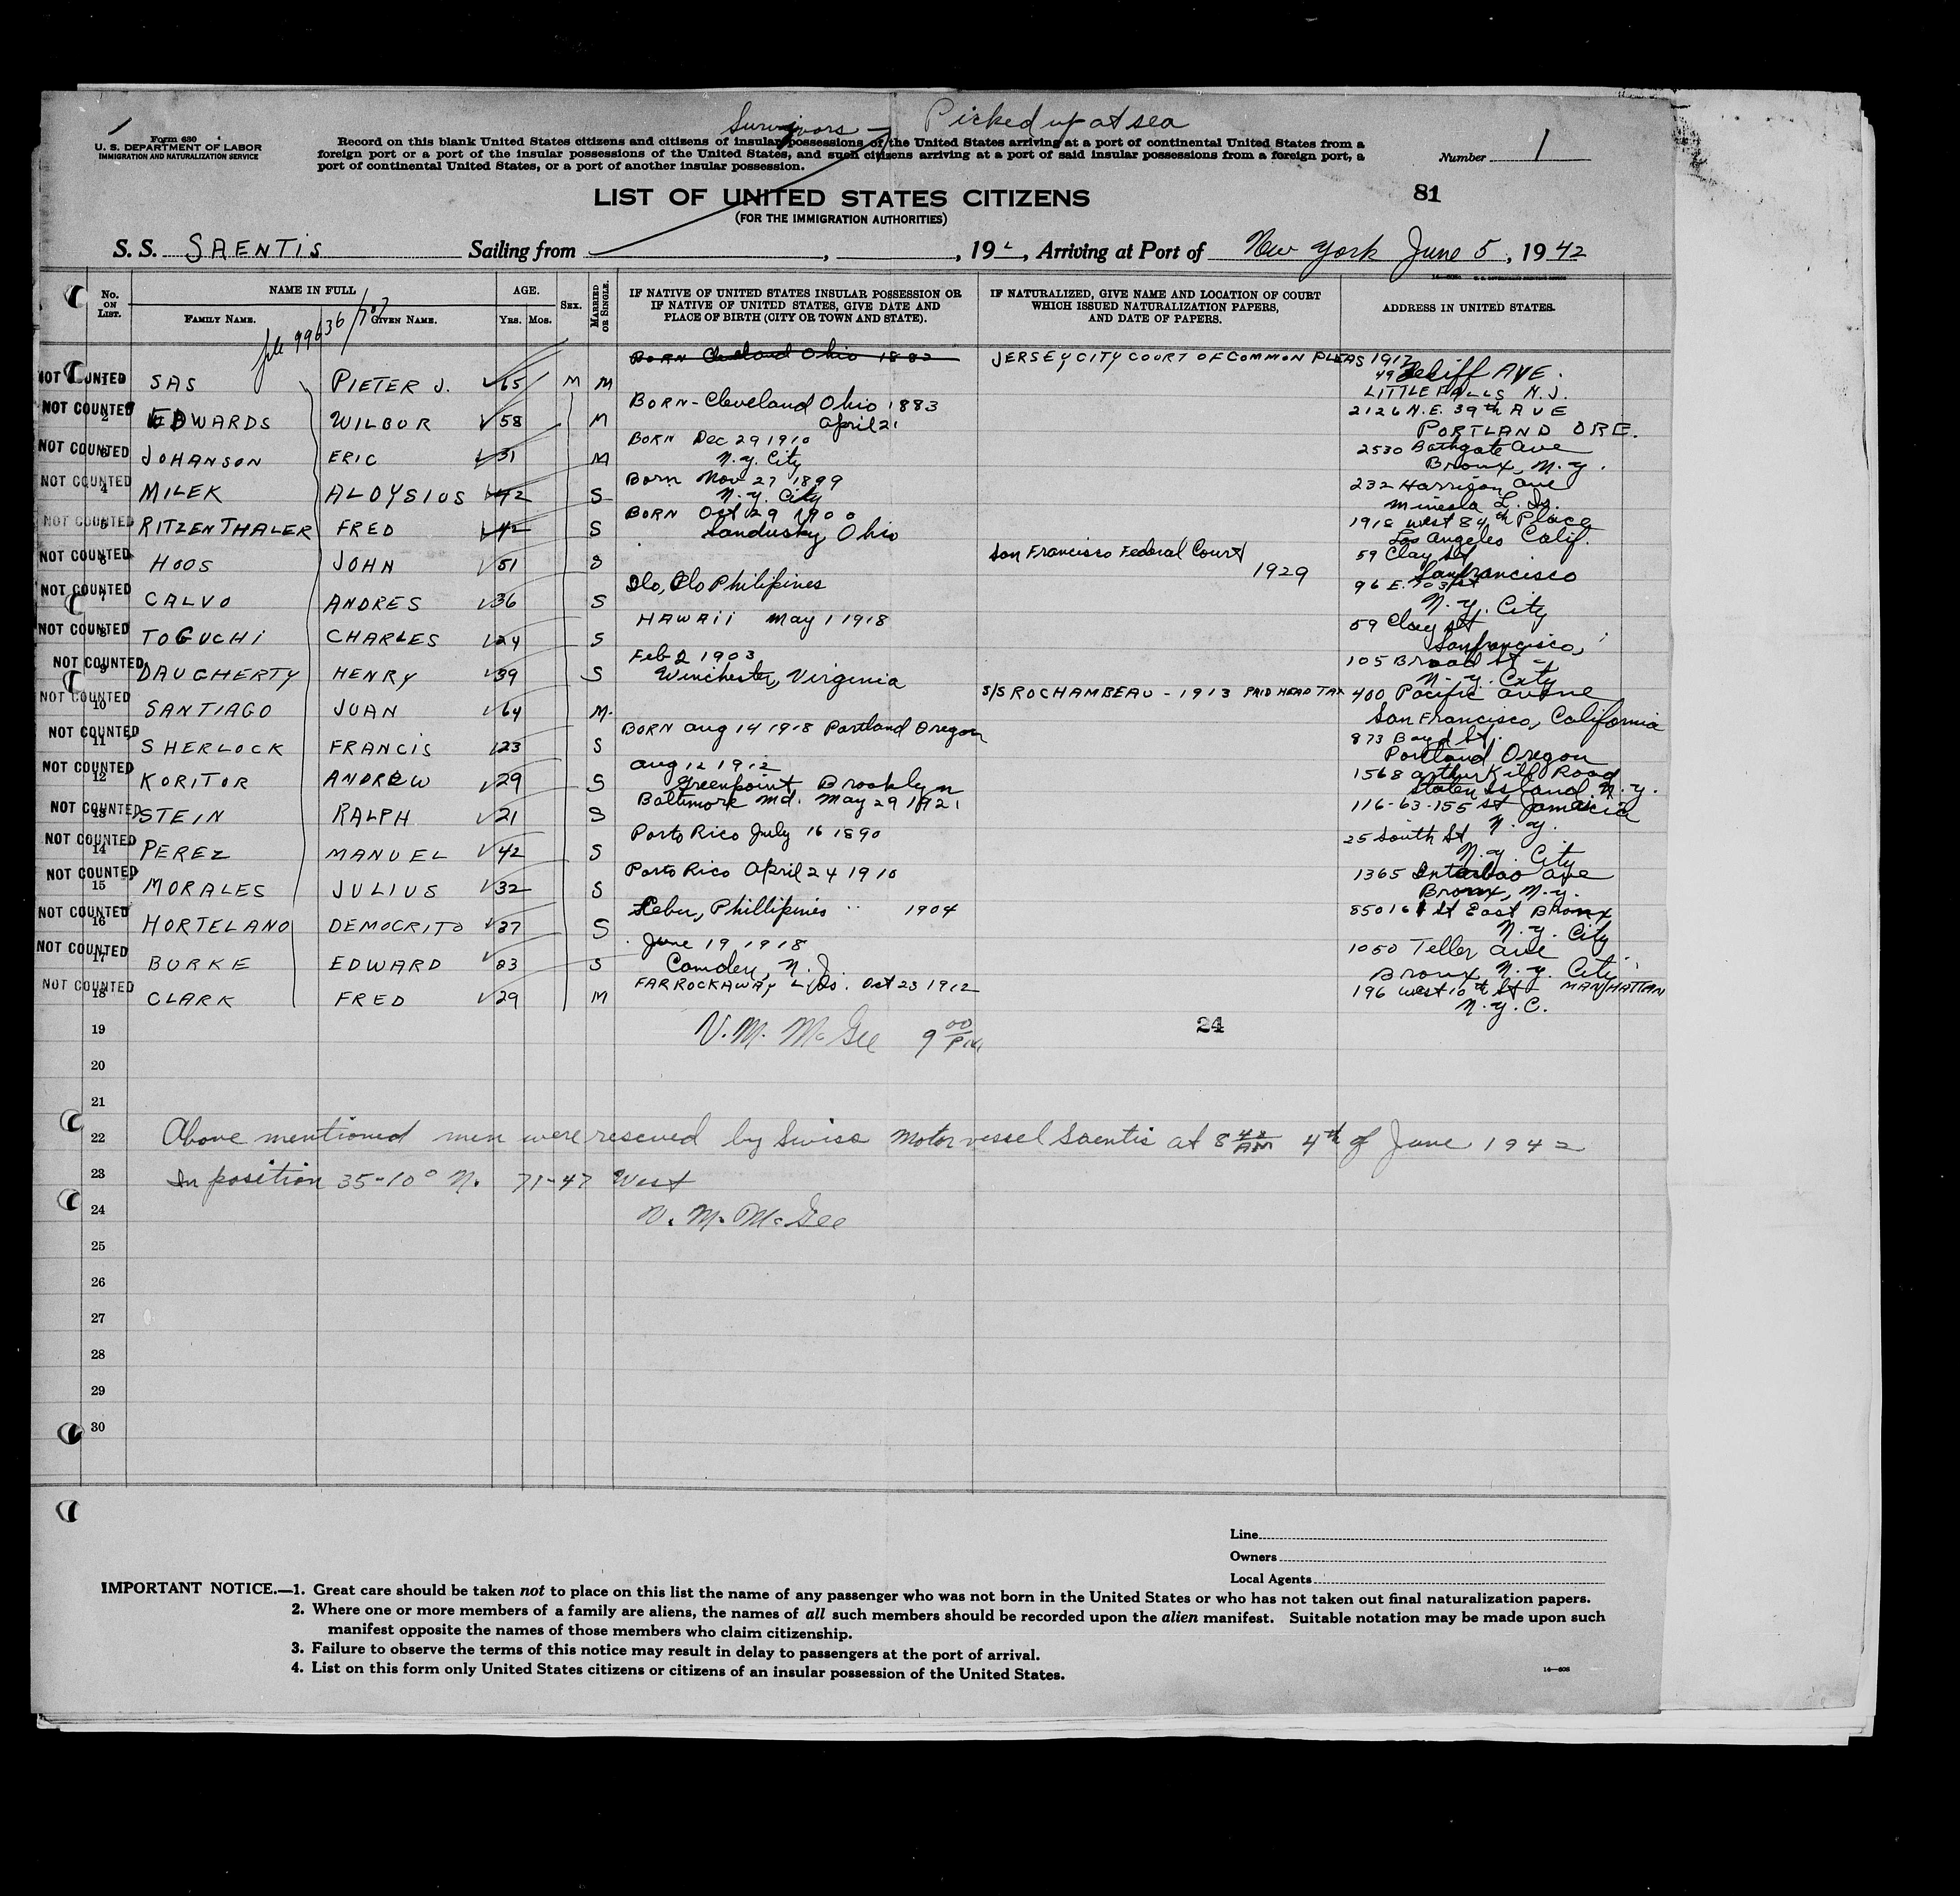 Survivors - Picked up at sea
Form 630
U. S. DEPARTMENT OF LABOR
IMMIGRATION AND NATURALIZATION SERVICE
Record on this blank United States citizens and citizens of insular possessions of the United States arriving at a port of continental United States from a
foreign port or a port of the insular possessions of the United States, and such citizens arriving at a port of said insular possessions from a foreign port, a
port of continental United States, or a port of another insular possession.
Number 1
LIST OF UNITED STATES CITIZENS
81
(FOR THE IMMIGRATION AUTHORITIES)
S. S. SAENTIS Sailing from , , 19 , Arriving at Port of New York June 5, 1942
No. ON LIST. NAME IN FULL FAMILY NAME. GIVEN NAME. AGE. Yrs. Mos. SEX. MARRIED OR SINGLE. IF NATIVE OF UNITED STATES INSULAR POSSESSION OR IF NATIVE OF UNITED STATES, GIVE DATE AND PLACE OF BIRTH (CITY OR TOWN AND STATE). IF NATURALIZED, GIVE NAME AND LOCATION OF COURT WHICH ISSUED NATURALIZATION PAPERS, AND DATE OF PAPERS. ADDRESS IN UNITED STATES.
file 99636/707
NOT COUNTED 1 SAS PIETER J. 65 M M BORN Cleveland Ohio 1883 JERSEY CITY COURT OF COMMON PLEAS 1917 AVE. LITTLE FALLS N.J.
NOT COUNTED 2 EDWARDS WILBUR 58 M BORN - Cleveland Ohio 1883 April 21 2126 N.E. 39th AVE PORTLAND ORE.
NOT COUNTED 3 JOHANSON ERIC 31 M BORN Dec 29 1910 N.Y. City 2530 Bathgate Ave Bronx, N.Y.
NOT COUNTED 4 MILEK ALOYSIUS 42 S Born Nov 27 1899 N.Y. City 232 Harrison Ave Mineola L. Is.
NOT COUNTED 5 RITZENTHALER FRED 42 S BORN Oct 29 1900 Sandusky Ohio 1918 West 84th Place Los Angeles Calif.
NOT COUNTED 6 HOOS JOHN 51 S San Francisco Federal Court 1929 59 Clay St Sanfrancisco
NOT COUNTED 7 CALVO ANDRES 36 S Ilo, Ilo Philipines 96 E. 103 St N.Y. City
NOT COUNTED 8 TOGUCHI CHARLES 24 S HAWAII May 1 1918 59 Clay St Sanfrancisco,
NOT COUNTED 9 DAUGHERTY HENRY 39 S Feb 2 1903 Winchester, Virginia 105 Broad St - N.Y. City
NOT COUNTED 10 SANTIAGO JUAN 64 M. S/S ROCHAMBEAU - 1913 PAID HEAD TAX 400 Pacific avenue San Francisco, California
NOT COUNTED 11 SHERLOCK FRANCIS 23 S BORN Aug 14 1918 Portland Oregon 873 Boyd St. Portland Oregon
NOT COUNTED 12 KORITOR ANDREW 29 S Aug 12 1912 Greenpoint, Brooklyn 1568 Arthur Kill Road Staten Island N.Y.
NOT COUNTED 13 STEIN RALPH 21 S Baltimore Md. May 29 1921 116-63-155 St Jamacia N.Y.
NOT COUNTED 14 PEREZ MANUEL 42 S Porto Rico July 16 1890 25 South St N.Y. City
NOT COUNTED 15 MORALES JULIUS 32 S Porto Rico April 24 1910 1365 Ave Bronx, N.Y.
NOT COUNTED 16 HORTELANO DEMOCRITO 37 S Cebu, Phillipines " 1904 850 161 St East Bronx N.Y. City
NOT COUNTED 17 BURKE EDWARD 23 S June 19 1918 Camden, N.J. 1050 Teller Ave Bronx N.Y. City
NOT COUNTED 18 CLARK FRED 29 M FAR ROCKAWAY L. Is. Oct 23 1912 196 West 10th St - MANHATTAN N.Y.C.
19 V. M. McGee 9 00 PM 24
20
21
22 Above mentioned men were rescued by Swiss Motor vessel Saentis at 8 42 AM 4th of June 1942
23 In position 35-10° N. 71-47 West
24 V. M. McGee
25
26
27
28
29
30
Line
Owners
Local Agents
IMPORTANT NOTICE.—1. Great care should be taken not to place on this list the name of any passenger who was not born in the United States or who has not taken out final naturalization papers.
2. Where one or more members of a family are aliens, the names of all such members should be recorded upon the alien manifest. Suitable notation may be made upon such
manifest opposite the names of those members who claim citizenship.
3. Failure to observe the terms of this notice may result in delay to passengers at the port of arrival.
4. List on this form only United States citizens or citizens of an insular possession of the United States.